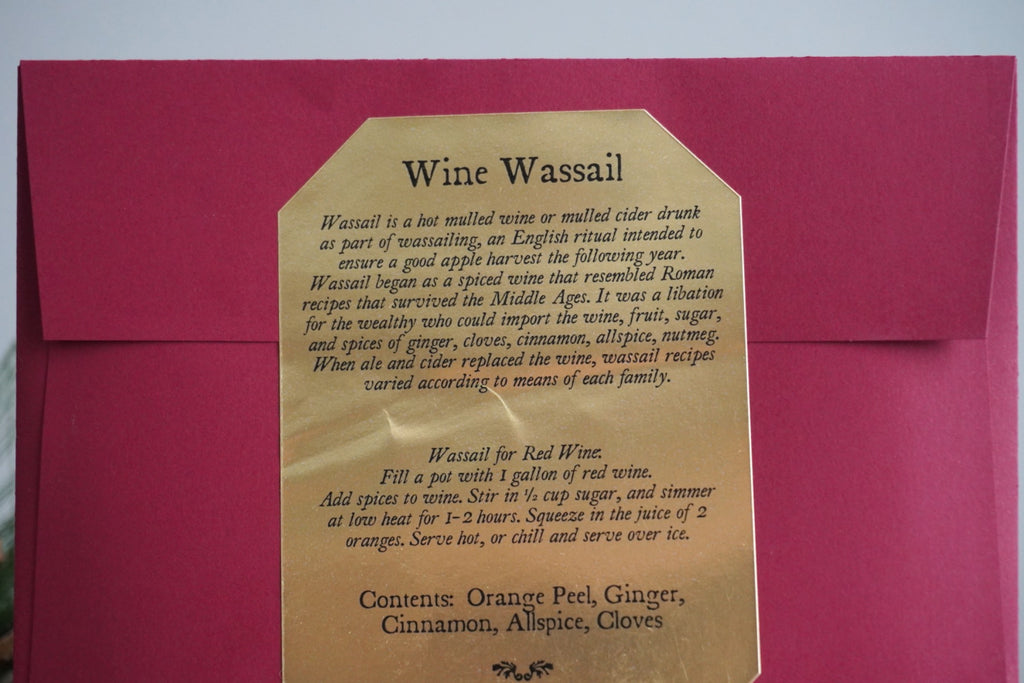 Wine Wassail
Wassail is a hot mulled wine or mulled cider drunk
as part of wassailing, an English ritual intended to
ensure a good apple harvest the following year.
Wassail began as a spiced wine that resembled Roman
recipes that survived the Middle Ages. It was a libation
for the wealthy who could import the wine, fruit, sugar,
and spices of ginger, cloves, cinnamon, allspice, nutmeg.
When ale and cider replaced the wine, wassail recipes
varied according to means of each family.
Wassail for Red Wine:
Fill a pot with 1 gallon of red wine.
Add spices to wine. Stir in ½ cup sugar, and simmer
at low heat for 1-2 hours. Squeeze in the juice of 2
oranges. Serve hot, or chill and serve over ice.
Contents: Orange Peel, Ginger,
Cinnamon, Allspice, Cloves